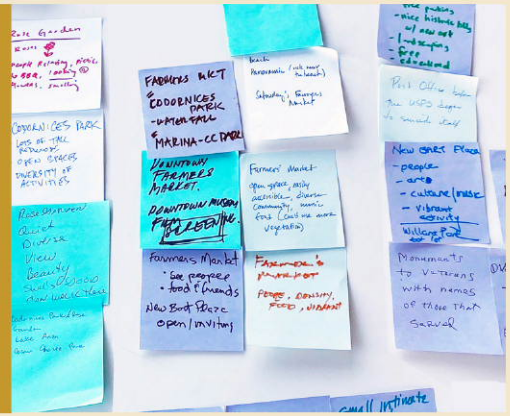 Rose Garden
Roses
People Relaxing, picnic
to BBQ, looking @
flowers, smelling
CODORNICES PARK
LOTS OF TALL
REDWOODS
OPEN SPACES
DIVERSITY OF
ACTIVITIES
Rose Garden
Quiet
Diverse
View
Beauty
FARMERS MKT
&
CODORNICES
PARK
-WATERFALL
&
MARINA-CC PARK
DOWNTOWN
FARMERS
MARKET.
DOWNTOWN MUSEUM
FILM SCREENING.
Farmers Market
• See people
• food & friends
New Bart Plaza
open/inviting
Saturday's Farmers
Market
Farmers' Market
open space, easily
accessible, diverse
community, music
food (could use more
vegetation)
Farmer's
Market
PEOPLE, DENSITY,
FOOD, VIBRANT
free parking
- nice historic bldg
w/ new art
- landscaping
- free
- educational
Post Office before
the USPS began
to
itself
New BART Plaza
- people
- arts
- culture/music
- vibrant
activity
Willard Park
Monuments
to Veterans
with names
of those that
Served
small intimate